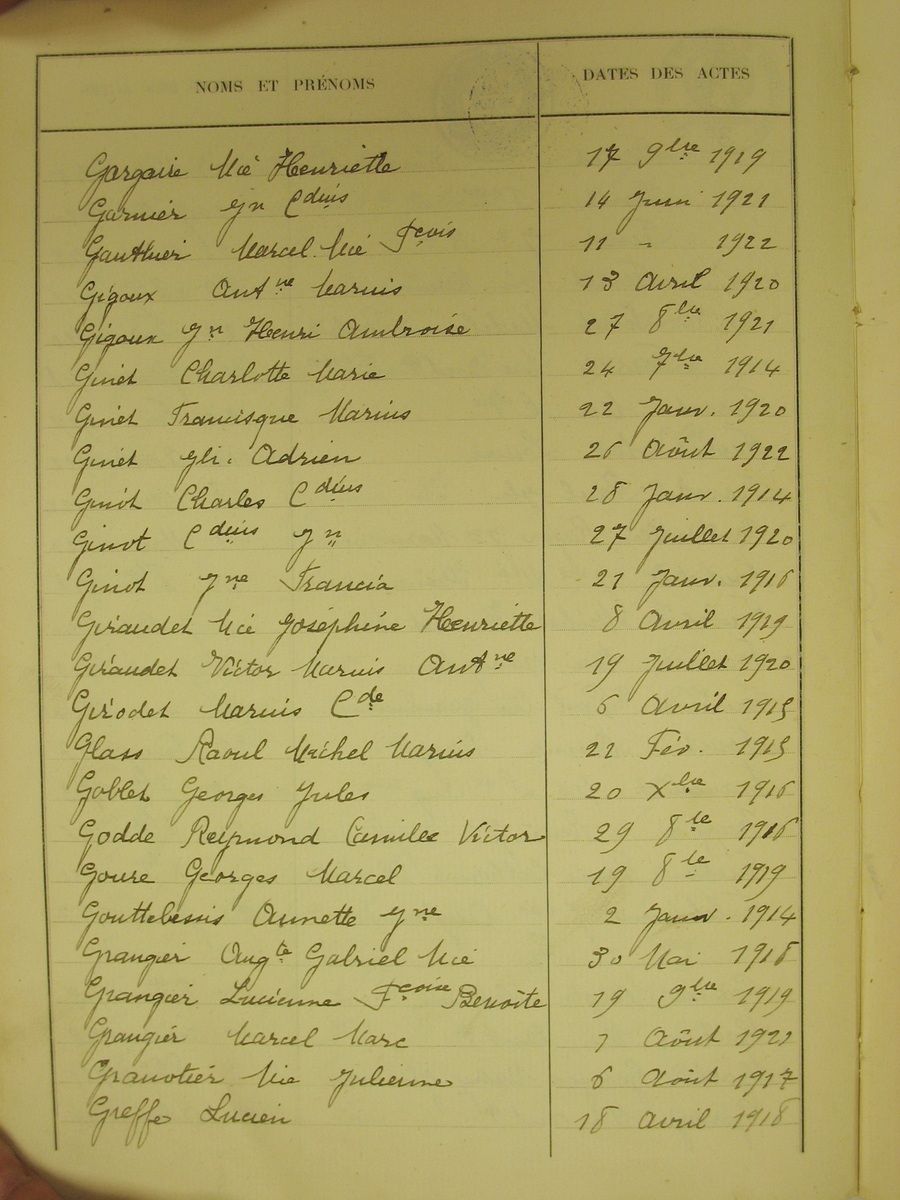 NOMS ET PRÉNOMS DATES DES ACTES
Gargaire Mie Henriette 17 9bre 1919
Garnier Jn Cdius 14 Juin 1921
Gauthier Marcel Mie Fçois 11 - 1922
Gigoux Antne Marius 13 Avril 1920
Gigoux Jn Henri Ambroise 27 8bre 1921
Ginet Charlotte Marie 24 7bre 1914
Ginet Francisque Marius 22 Janv. 1920
Ginet Adrien 26 Août 1922
Ginot Charles Cdius 28 Janv. 1914
Ginot Cdius Jn 27 Juillet 1920
Ginot Jne Francia 21 Janv. 1916
Giraudet Mie Joséphine Henriette 8 Avril 1919
Giraudet Victor Marius Antne 19 Juillet 1920
Girodet Marius Cde 6 Avril 1915
Glass Raoul Michel Marius 21 Fév. 1915
Goblet Georges Jules 20 Xbre 1916
Godde Reymond Camille Victor 29 8bre 1916
Goure Georges Marcel 19 8bre 1919
Gouttebessis Annette Jne 2 Janv. 1914
Grangier Augte Gabriel Mie 30 Mai 1918
Grangier Lucienne Fçoise Benoîte 19 9bre 1919
Grangier Marcel Marc 1 Août 1921
Granotier Mie Julienne 6 Août 1917
Greffe Lucien 18 Avril 1918